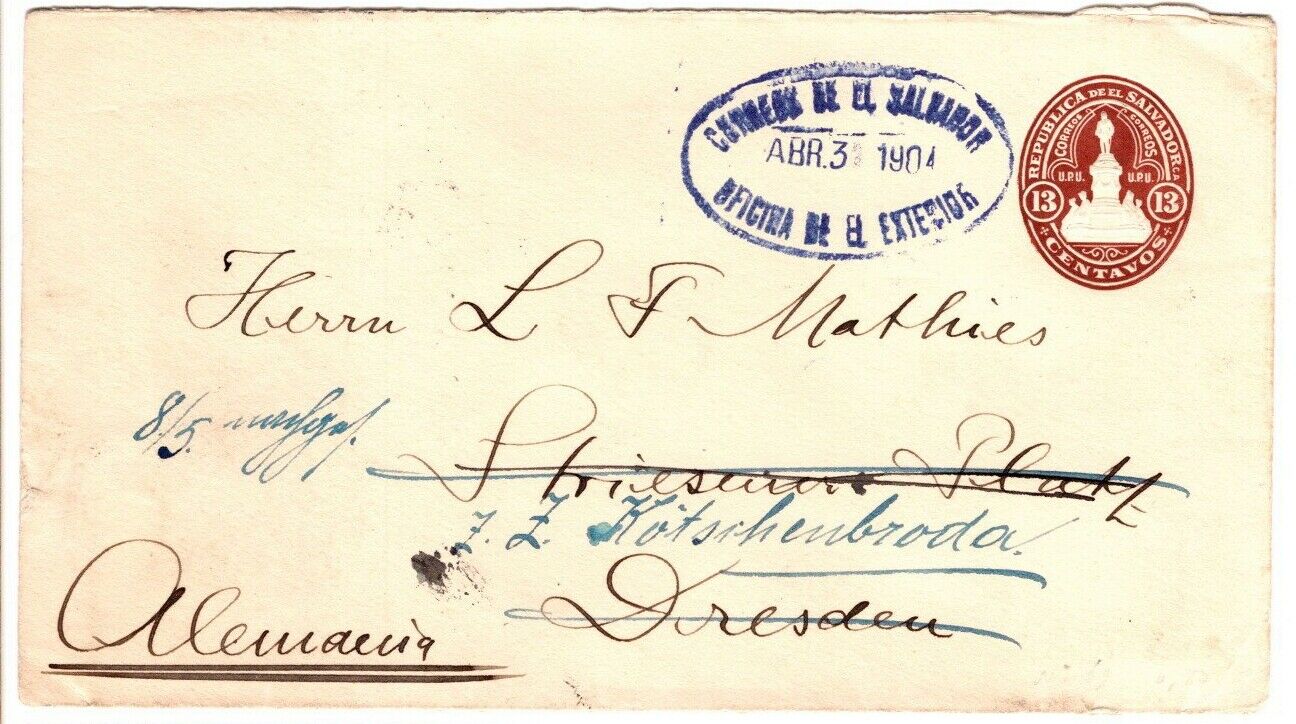 CORREOS DE EL SALVADOR
ABR. 3 1904
OFICINA DE EL EXTERIOR
REPUBLICA DE EL SALVADOR C.A.
CORREOS CORREOS
U.P.U. U.P.U.
13 13
CENTAVOS
Herrn L F Mathies
8/5. nachges.
Striesener Platz
z. Z. Kötschenbroda.
Dresden
Alemania